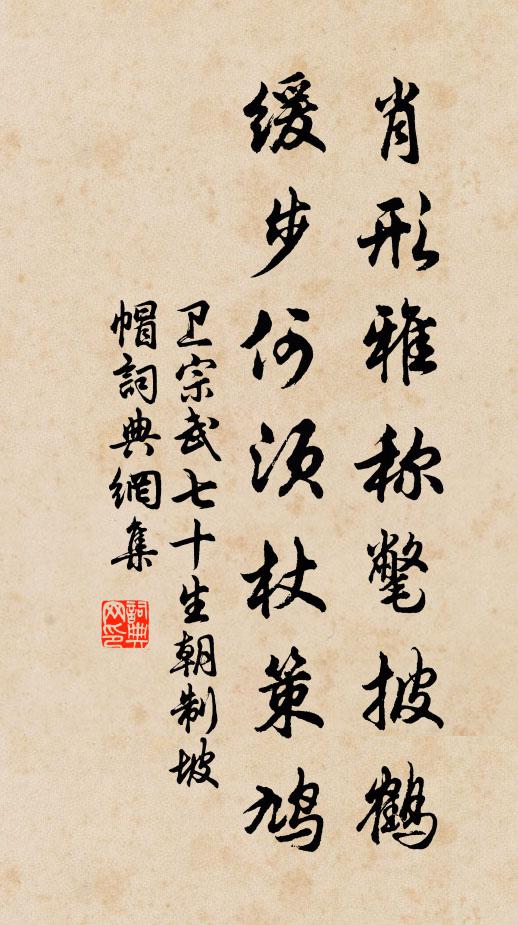 肖形雅称氅披鹤
缓步何须杖策鸠
卫宗武七十生朝制坡
帽詞典網集
詞典网印